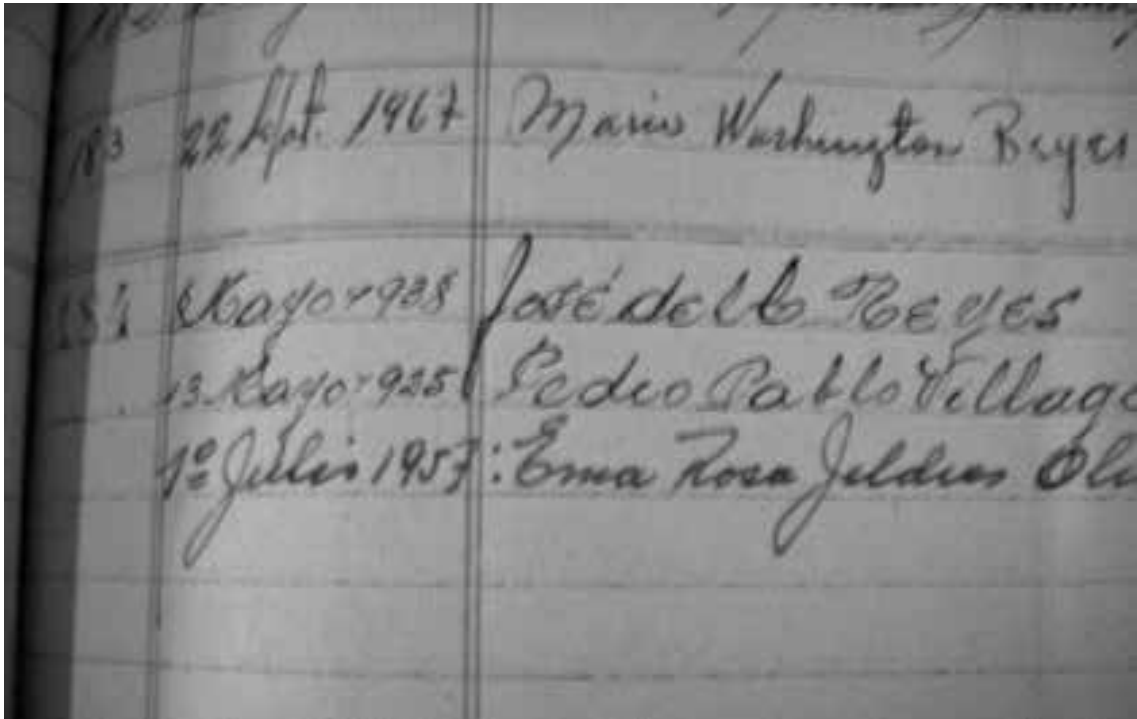 183 22 Sept. 1967 Mario Washington Reyes
184 Mayo-938 José del C. Reyes
13 Mayo-925 Pedro Pablo Villag
1º Julio 1957: Ema Rosa Jeldres Oli